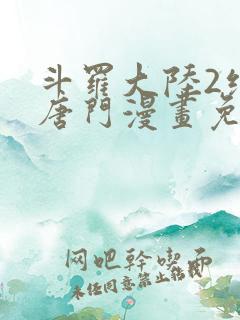 斗羅大陸2
唐門漫畫免
网吧幹喫面
未经同意禁止转载